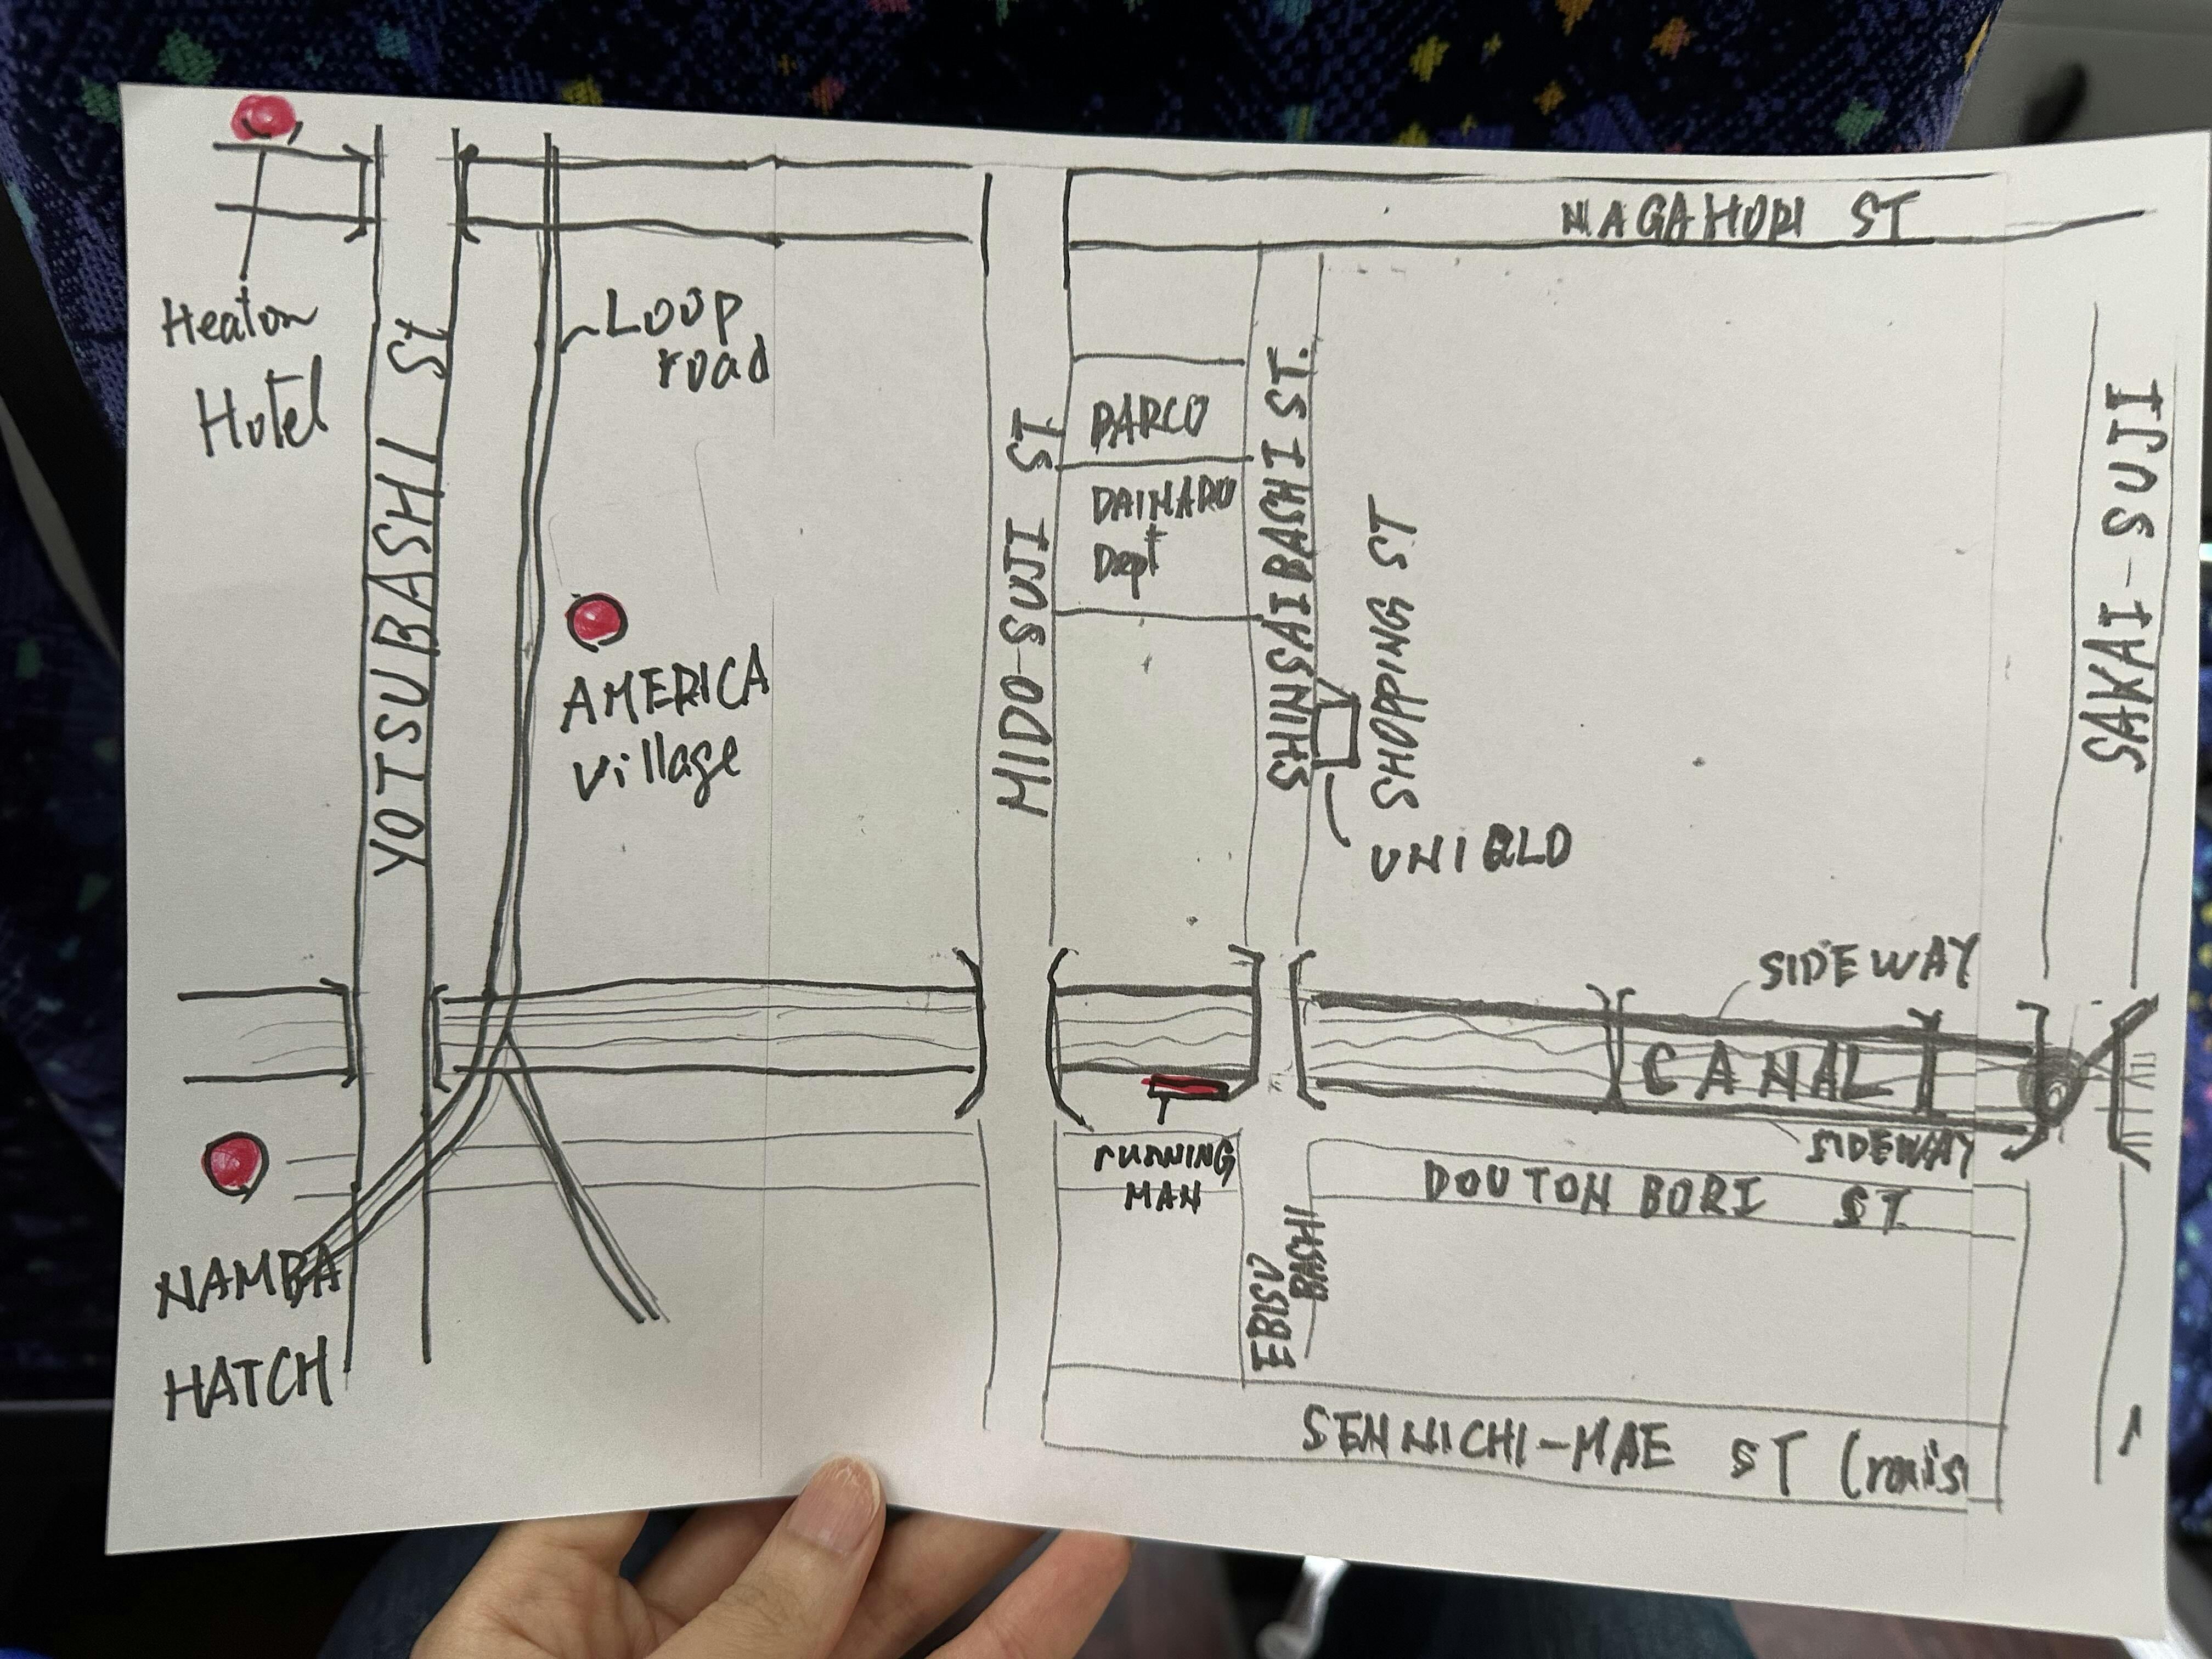 NAGAHORI ST
Heaton
Hotel
YOTSUBASHI St
LOOP
road
AMERICA
village
MIDO-SUJI ST
PARCO
DAIMARU
Dept
SHINSAIBASHI ST.
SHOPPING ST
UNIQLO
SAKAI-SUJI
SIDEWAY
CANAL
SIDEWAY
running
MAN
DOUTON BORI ST
EBISU
BASHI
NAMBA
HATCH
SENNICHI-MAE ST